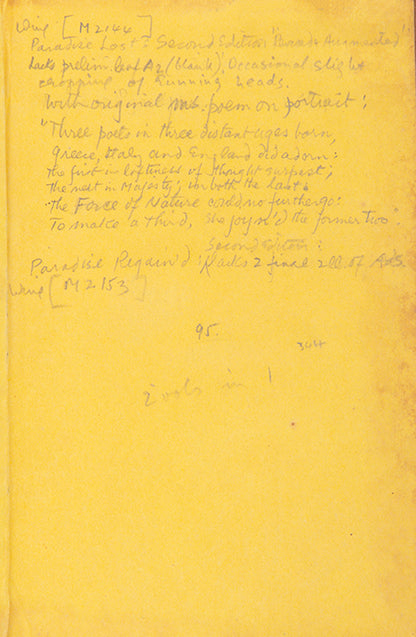 Wing [M2144]
Paradise Lost = Second Edition Revised Augmented
Lacks prelim. leaf A2 (blank). Occasional slight
cropping of running heads.
With original ms. poem on portrait;
"Three poets in three distant ages born,
Greece, Italy and England did adorn:
The first in loftiness of thought surpast;
The next in Majesty; in both the Last.
The Force of Nature could no further go:
To make a third, she joyn'd the former two.
Second Edition:
Paradise Regain'd: lacks 2 final ll. of
Wing [M2153]
95.
304
2 vols in 1